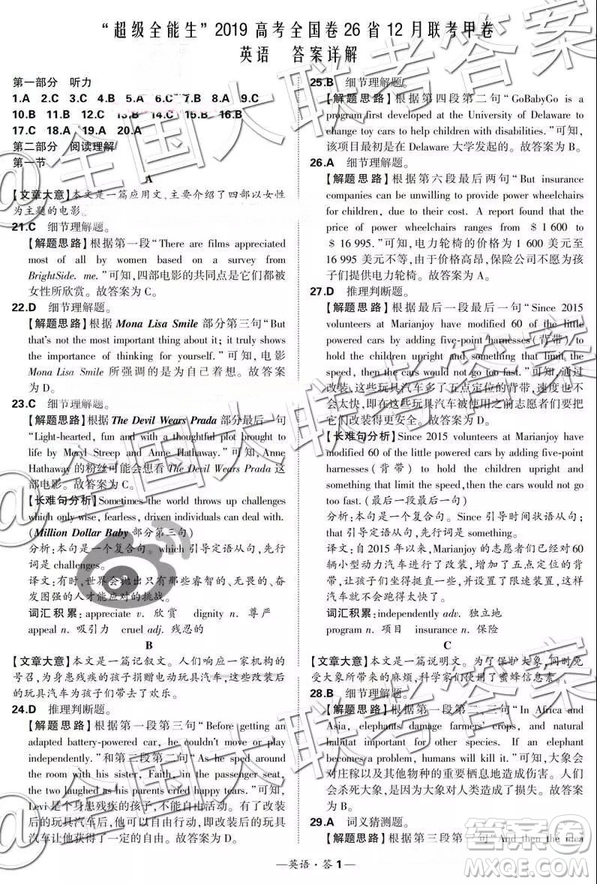 “超级全能生”2019高考全国卷26省12月联考甲卷
英语 答案详解
第一部分 听力
1.A 2.C 3.C 4.A 5.B 6.C 7.A 8.B 9.C
10.B 11.C 12.B 13.C 14.C 15.A 16.B
17.C 18.A 19.A 20.A
第二部分 阅读理解
第一节
A
【文章大意】本文是一篇应用文,主要介绍了四部以女性
为主题的电影。
21.C 细节理解题。
【解题思路】根据第一段“There are films appreciated
most of all by women based on a survey from
BrightSide. me.”可知,四部电影的共同点是它们都
被女性所欣赏。故答案为C。
22.D 细节理解题。
【解题思路】根据 Mona Lisa Smile 部分第三句“But
that's not the most important thing about it; it truly shows
the importance of thinking for yourself.”可知,电影
Mona Lisa Smile 所强调的是为自己着想。故答案
为D。
23.C 细节理解题。
【解题思路】根据 The Devil Wears Prada 部分最后一句
“Light-hearted, fun and with a thoughtful plot brought to
life by Meryl Streep and Anne Hathaway.”可知,Anne
Hathaway 的粉丝可能会想看 The Devil Wears Prada 这
部电影。故答案为C。
【长难句分析】Sometimes the world throws up challenges
which only wise, fearless, driven individuals can deal with.
(Million Dollar Baby 部分第三句)
分析:本句是一个复合句。which 引导定语从句,先行
词是 challenges。
译文:有时,世界会抛出只有那些有睿智的、无畏的、发
愤图强的人才能应对的挑战。
词汇积累:appreciate v. 欣赏 dignity n. 尊严
appeal n. 吸引力 cruel adj. 残忍的
B
【文章大意】本文是一篇记叙文。人们响应一家机构的
号召,为身患残疾的孩子改装动力玩具汽车,这些改装后
的玩具汽车给孩子们带去了欢乐。
24.D 推理判断题。
【解题思路】根据第一段第三句“Before getting an
adapted battery-powered car, he couldn't move or play
independently.”和第二段第一句“As he sped around
the room with his friend, Faith, in the passenger seat,
the two laughed as his parents cried happy tears.”可知,
Levi是个身患残疾的孩子,不能自由活动,但是在有了改装
后的玩具汽车后,他能自由活动,而且他的父母喜极而泣,由此
可知,玩具汽车让他过得更快乐了。故答案为D。
25.B 细节理解题。
【解题思路】根据第四段第二句“GoBabyGo is a
program first developed at the University of Delaware to
change toy cars to help children with disabilities.”可知,
该项目是在 Delaware 大学发起的。故答案为B。
26.A 细节理解题。
【解题思路】根据第六段最后两句“But insurance
companies can be unwilling to provide power wheelchairs
for children, due to their cost. For example, the
price of power wheelchairs range from $1 600 to
$16 995.”可知,电力轮椅的价格为1 600美元至
16 995美元不等,价格过高,保险公司不愿为孩子
们提供电力轮椅。故答案为A。
27.D 推理判断题。
【解题思路】根据最后一段最后一句“Since 2015
volunteers at Marianjoy have modified 60 of the little
powered cars by adding five-point harnesses (背带) to
to hold the children upright and something that limit the
speed, so the cars would not go too fast.”可知,通过
改装,这些玩具汽车多了五点定位的背带,速度也
不会太快,即在这些玩具汽车被给到孩子们使用
之前志愿者们会对它们做改装。故答案为D。
【长难句分析】Since 2015 volunteers at Marianjoy have
modified 60 of the little powered cars by adding five-point
harnesses (背带) to hold the children upright and
something that limit the speed, so the cars would not go
too fast.(最后一段最后一句)
分析:本句是一个复合句。Since 引导时间状语从句;
that引导定语从句,先行词是something。
译文:自2015年以来,Marianjoy的志愿者们已经对60
辆小型动力汽车进行了改装,增加了五点定位的背带,
让孩子们能坐直,并且加入了限速功能,这样汽车就不
会开得太快。
词汇积累:independently adv. 独立地
program n. 项目 insurance n. 保险
C
【文章大意】本文是一篇说明文。为了保护大象,也为了避
免大象带来的麻烦,科学家们研究出了蜜蜂信息素。
28.B 细节理解题。
【解题思路】根据第一段第二、三句“In Africa and
Asia, elephants damage farmers' crops, and
elephants may even kill people. If an elephant
becomes a problem, humans will kill it.”可知,大象会
对庄稼以及人们造成伤害,人们也会因为这些问题
杀死大象,大象与人类之间存在冲突。故答案
为B。
29.A 词义猜测题。
【解题思路】根据第三段第一、二句
英语·答1